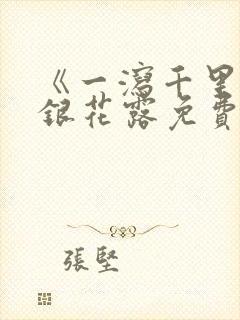 《一瀉千里
銀花露免費
張堅